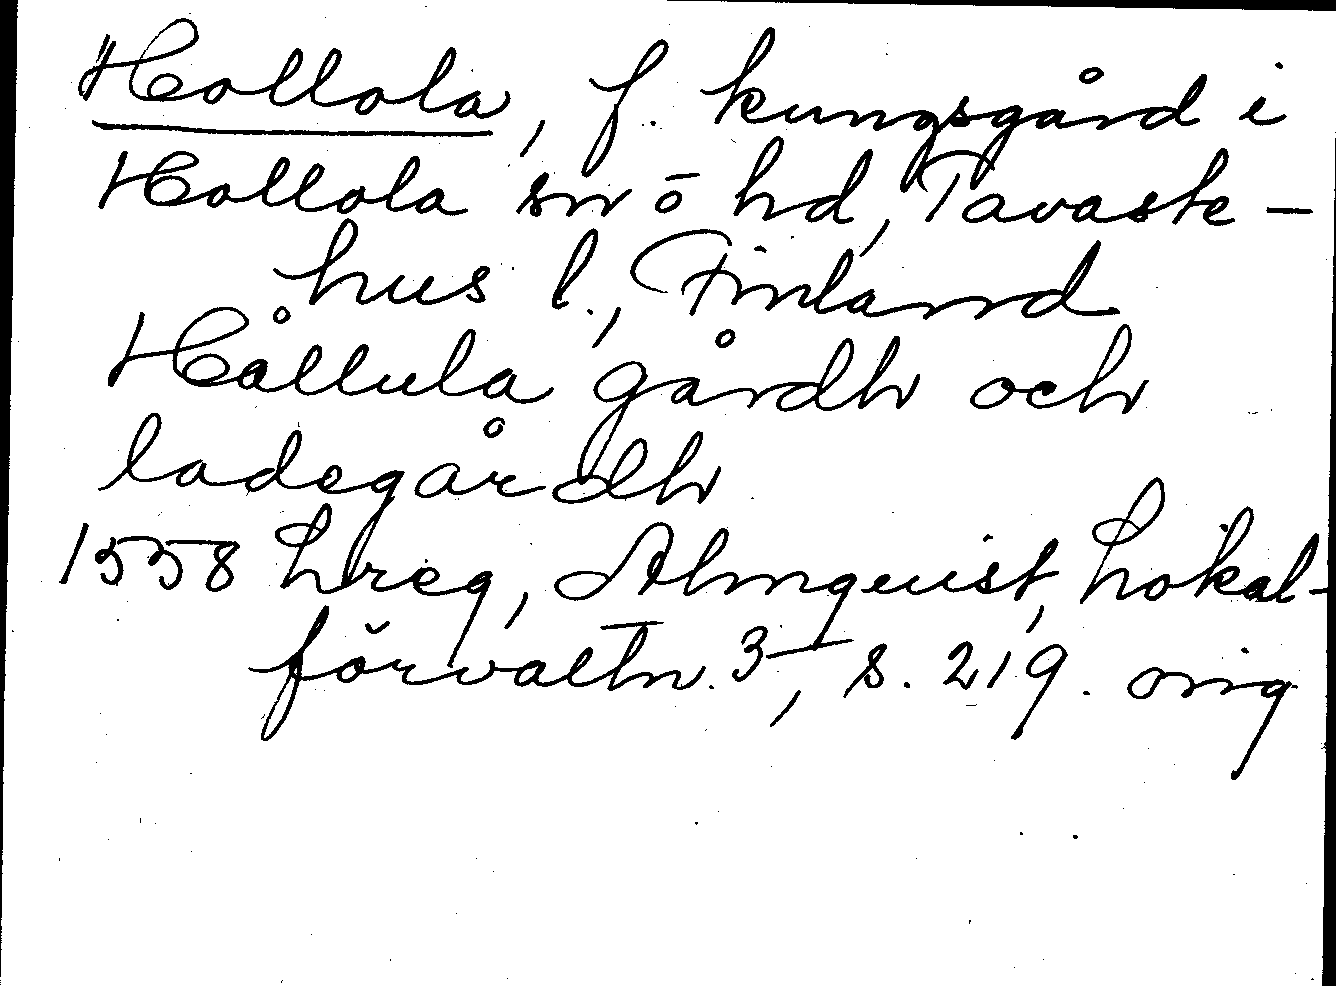 Hollola, f. kungsgård i
Hollola sn ō hd, Tavaste-
hus l., Finland
Hållula gårdh och
ladegårdh
1558 Lreg, Almquist, Lokal-
förvaltn. 3, s. 219. orig